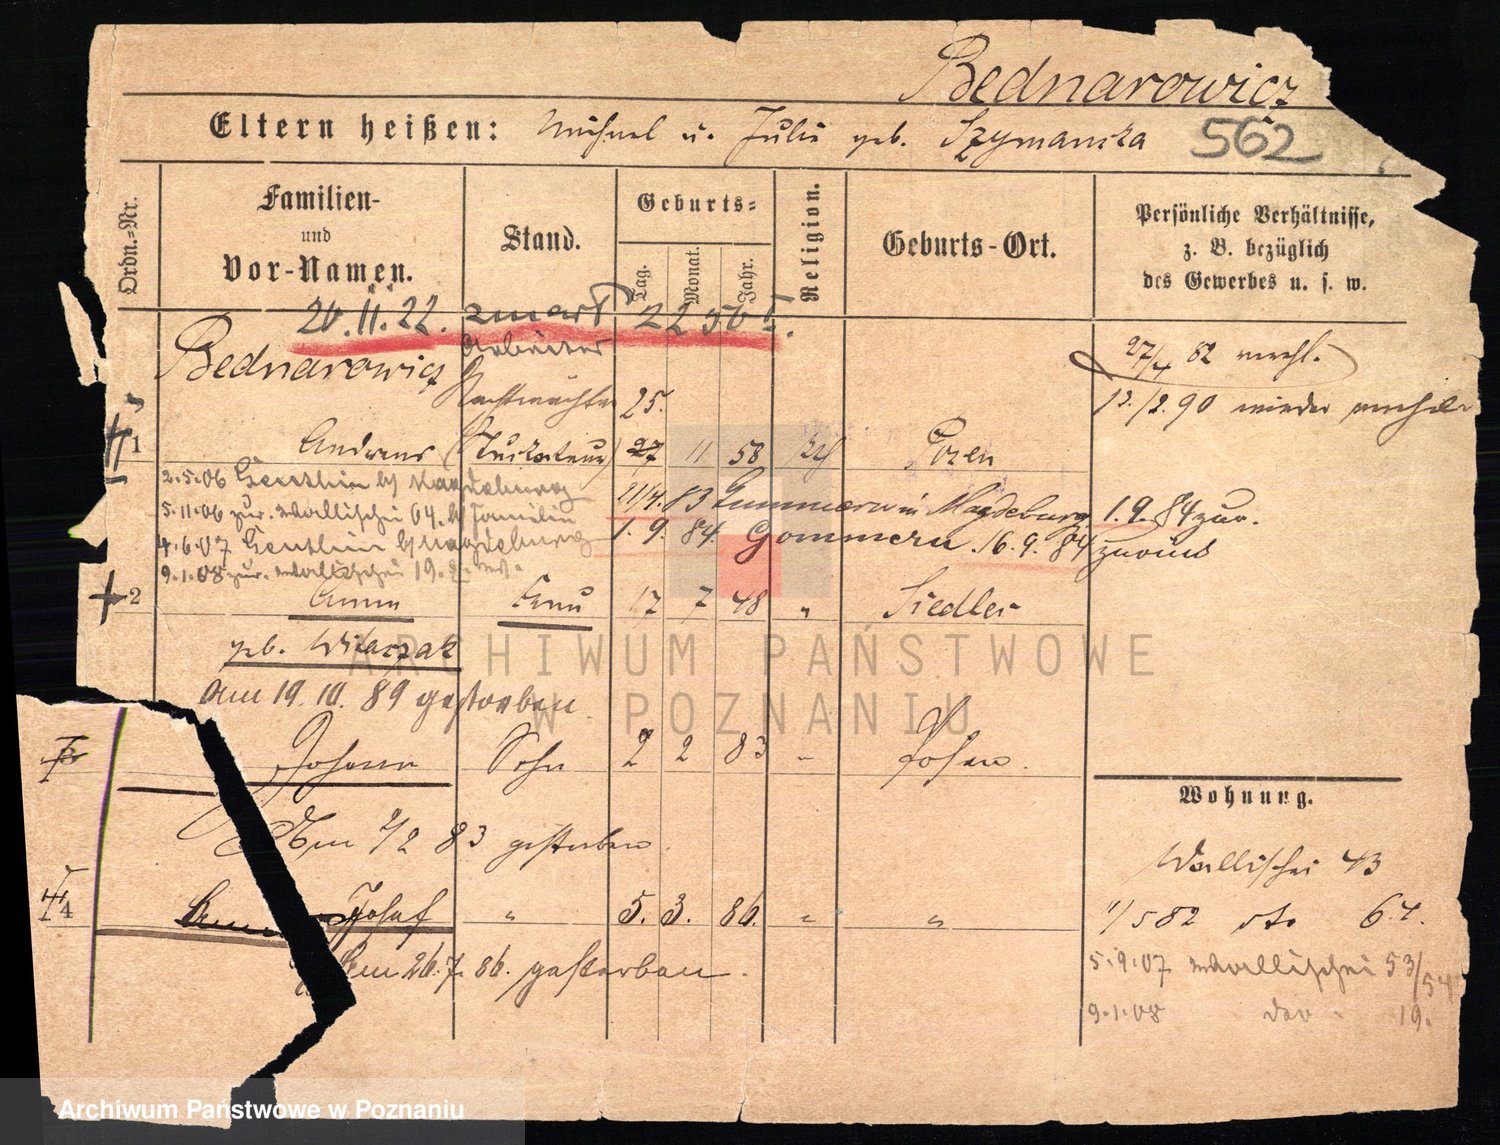 Bednarowicz
Eltern heißen: Michael u. Julie geb. Szymanska 562
Ordn.=Nr.
Familien-
und
Vor-Namen.
Stand.
Geburts=
Tag.
Monat.
Jahr.
Religion.
Geburts-Ort.
Persönliche Verhältnisse,
z. B. bezüglich
des Gewerbes u. s. w.
20.11.22. zmarł
Bednarowicz Arbeiter
Nachtwächter 25.
27/4 82 verehl.
12./2. 90 wieder verehel.
1 Andreas 27 11 58 Posen
2.5.06 Genthin b/ Magdeburg
21/4. 83 Gummern in Magdeburg 1.9.84 zur.
5.11.06 zur. Wallischei 64. b/ Familie
1.9.84 Gommern. 16.9.84 zurück
4.6.07 Genthin b/ Magdeburg
9.1.08 zur. Wallischei 19.
2 Anna Frau 17 7 48 " Siedlec
geb. Witaczak
am 19.10.89 gestorben
3 Johann Sohn 2 2 83 " Posen.
Wohnung.
Am 2/2 83 gestorben.
Wallischei 43
4 Josef " 5. 3. 86. " "
1/5 82 dto 64.
Am 26.7.86. gestorben.
5.9.07 Wallischei 53/54
9.1.08 do 19.
ARCHIWUM PAŃSTWOWE
W POZNANIU
Archiwum Państwowe w Poznaniu